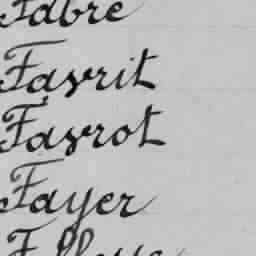 Fabre
Favrit
Favrot
Fayer